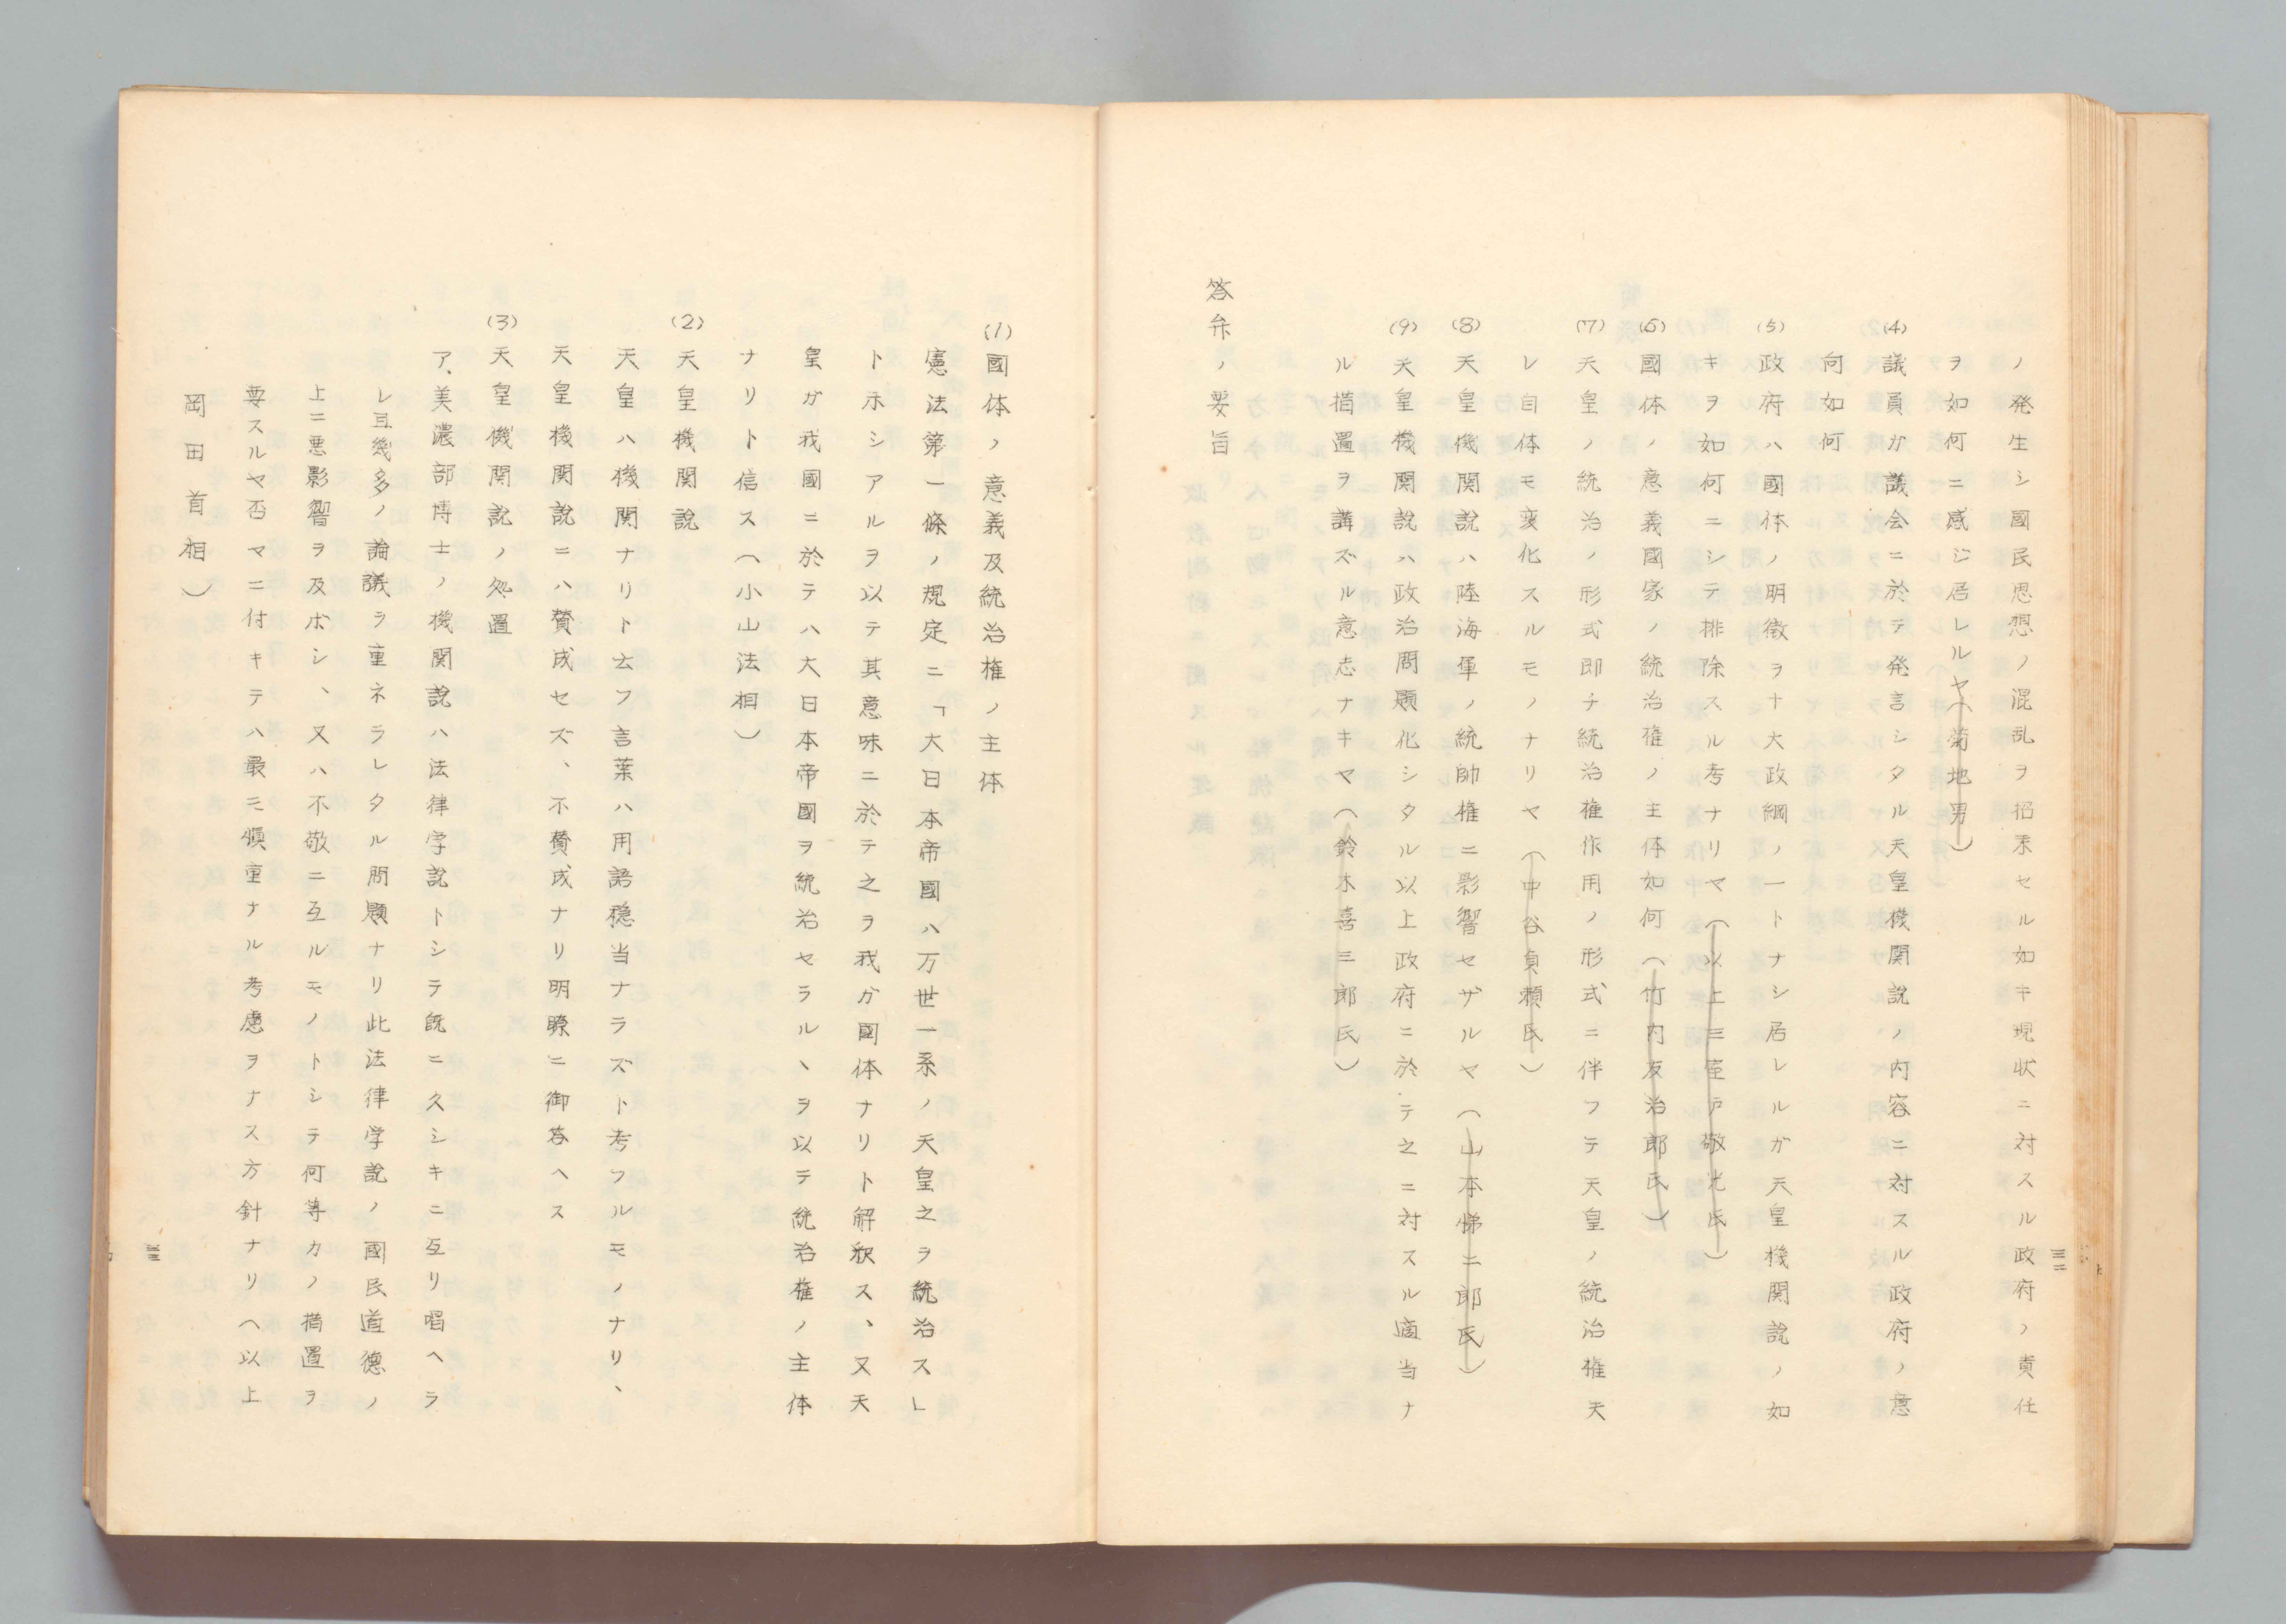 ノ発生シ國民思想ノ混乱ヲ招来セル如キ現状ニ対スル政府ノ責任
ヲ如何ニ感ジ居レルヤ(菊地男)
(4)議員ガ議会ニ於テ発言シタル天皇機関説ノ内容ニ対スル政府ノ意
向如何
(5)政府ハ國体ノ明徴ヲ十大政綱ノ一トナシ居レルガ天皇機関説ノ如
キヲ如何ニシテ排除スル考ナリヤ(以上三室戸敬光氏)
(6)國体ノ意義國家ノ統治権ノ主体如何(竹内友治郎氏)
(7)天皇ノ統治ノ形式即チ統治権作用ノ形式ニ伴フテ天皇ノ統治権天
レ自体モ変化スルモノナリヤ(中谷貞頼氏)
(8)天皇機関説ハ陸海軍ノ統帥権ニ影響セザルヤ(山本悌二郎氏)
(9)天皇機関説ハ政治問題化シタル以上政府ニ於テ之ニ対スル適当ナ
ル措置ヲ講ズル意志ナキヤ(鈴木喜三郎氏)
答弁ノ要旨
三二
(1)國体ノ意義及統治権ノ主体
憲法第一條ノ規定ニ「大日本帝國ハ万世一系ノ天皇之ヲ統治ス」
ト示シアルヲ以テ其意味ニ於テ之ヲ我ガ國体ナリト解釈ス、又天
皇ガ我國ニ於テハ大日本帝國ヲ統治セラルヽヲ以テ統治権ノ主体
ナリト信ス(小山法相)
(2)天皇機関説
天皇ハ機関ナリト云フ言葉ハ用語穏当ナラズト考フルモノナリ、
天皇機関説ニハ賛成セズ、不賛成ナリ明瞭ニ御答ヘス
(3)天皇機関説ノ処置
ア、美濃部博士ノ機関説ハ法律学説トシテ既ニ久シキニ亙リ唱ヘラ
レ且幾多ノ論議ヲ重ネラレタル問題ナリ此法律学説ノ國民道徳ノ
上ニ悪影響ヲ及ボシ、又ハ不敬ニ亙ルモノトシテ何等カノ措置ヲ
要スルヤ否ヤニ付キテハ最モ慎重ナル考慮ヲナス方針ナリ(以上
岡田首相)
三三